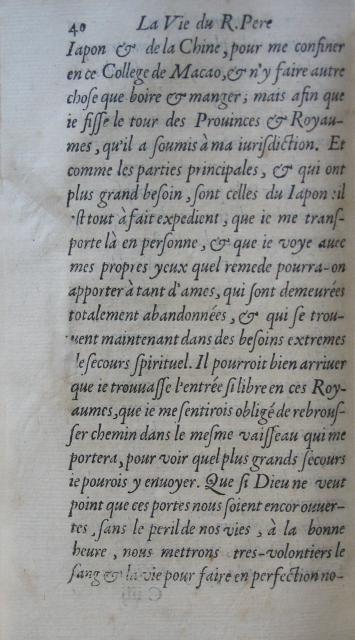 40 La Vie du R. Pere
Iapon & de la Chine, pour me confiner
en ce College de Macao, & n'y faire autre
chose que boire & manger; mais afin que
ie fisse le tour des Prouinces & Royau-
mes, qu'il a soumis à ma iurisdiction. Et
comme les parties principales, & qui ont
plus grand besoin, sont celles du Iapon: il
est tout à fait expedient, que ie me trans-
porte là en personne, & que ie voye auec
mes propres yeux quel remede pourra-on
apporter à tant d'ames, qui sont demeurées
totalement abandonnées, & qui se trou-
uent maintenant dans des besoins extremes
de secours spirituel. Il pourroit bien arriuer
que ie trouuasse l'entrée si libre en ces Roy-
aumes, que ie me sentirois obligé de rebrous-
ser chemin dans le mesme vaisseau qui me
portera, pour voir quel plus grands secours
ie pourois y enuoyer. Que si Dieu ne veut
point que ces portes nous soient encor ouuer-
tes, sans le peril de nos vies, à la bonne
heure, nous mettrons tres-volontiers le
sang & la vie pour faire en perfection no-